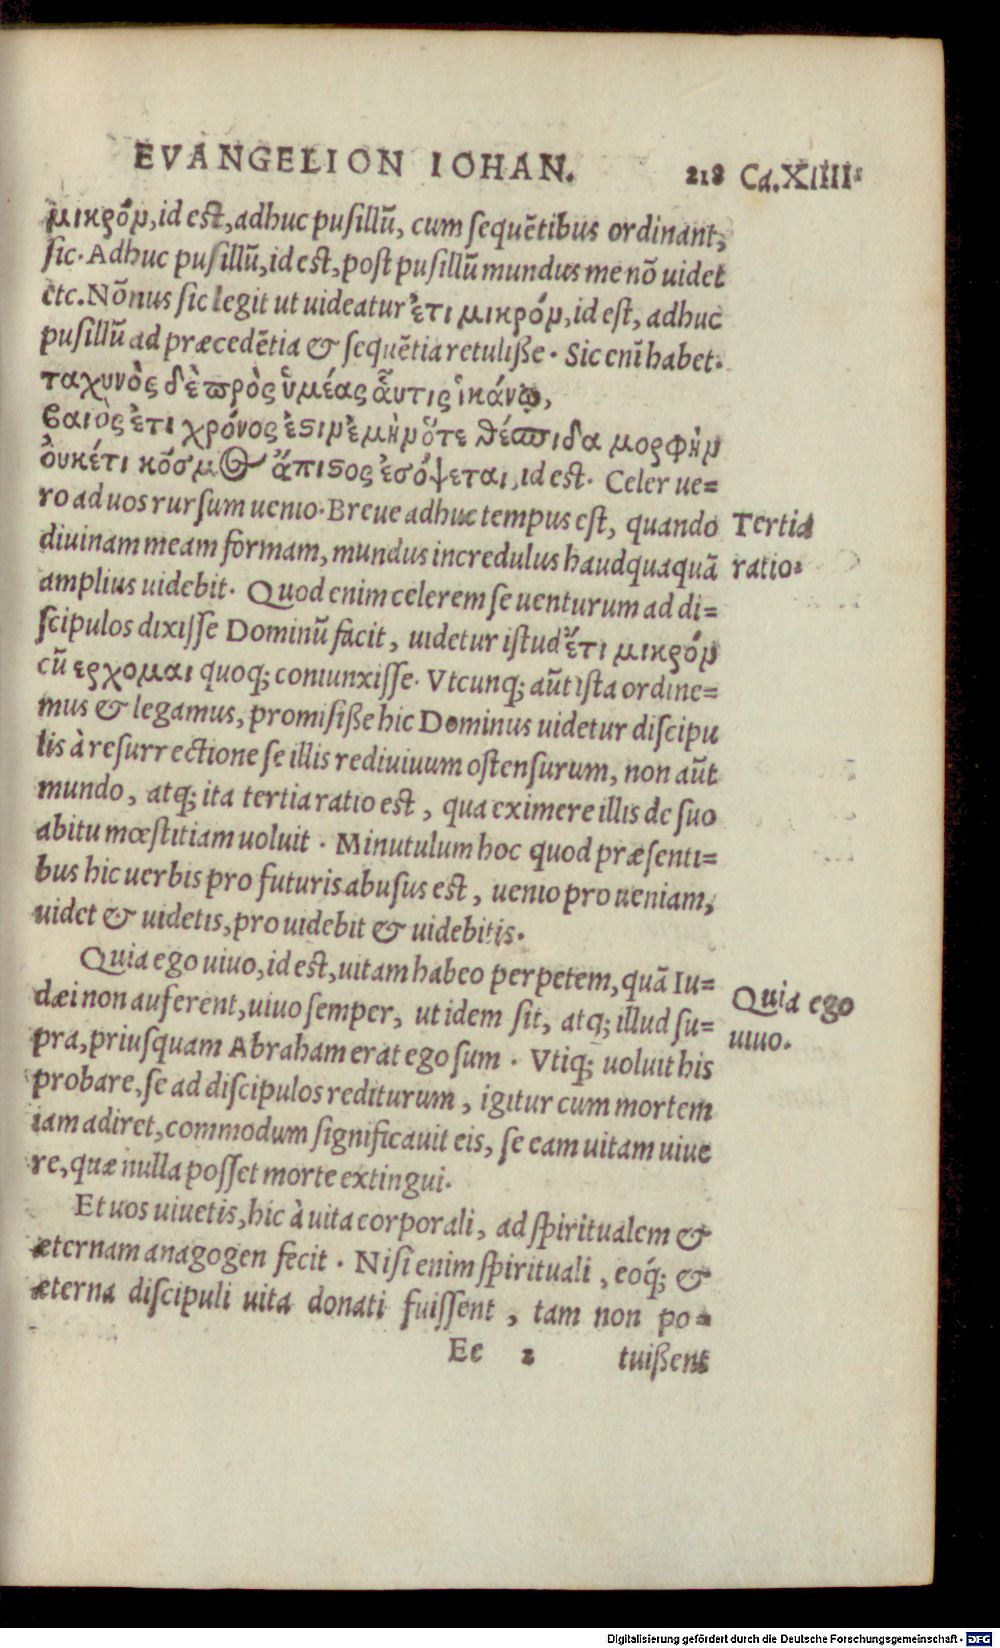 EVANGELION IOHAN. 218 Ca.XIIII.
μικρόν, id est, adhuc pusillũ, cum sequẽtibus ordinant,
sic. Adhuc pusillũ, id est, post pusillũ mundus me nõ uidet
etc. Nõnus sic legit ut uideatur ἔτι μικρόν, id est, adhuc
pusillũ ad præcedẽtia & sequẽtia retulisse. Sic enĩ habet.
ταχυνὸς δὲ πρὸς ὑμέας αὖτις ἱκάνω,
βαιὸς ἔτι χρόνος ἐϛὶν ἐμὴν ὅτε θέσπιδα μορφὴν
ὀυκέτι κόσμος ἄπιϛος ἐσόψεται, id est. Celer ue=
ro ad uos rursum uenio. Breue adhuc tempus est, quando
Tertia
diuinam meam formam, mundus incredulus haudquaquã
ratio.
amplius uidebit. Quod enim celerem se uenturum ad di=
scipulos dixisse Dominũ facit, uidetur istud ἔτι μικρόν
cũ ερχομαι quoq; coniunxisse. Vtcunq; aũt ista ordine=
mus & legamus, promisisse hic Dominus uidetur discipu
lis à resurrectione se illis rediuiuum ostensurum, non aũt
mundo, atq; ita tertia ratio est, qua eximere illis de suo
abitu mœstitiam uoluit. Minutulum hoc quod præsenti=
bus hic uerbis pro futuris abusus est, uenio pro ueniam,
uidet & uidetis, pro uidebit & uidebitis.
Quia ego uiuo, id est, uitam habeo perpetem, quã Iu=
Quia ego
dæi non auferent, uiuo semper, ut idem sit, atq; illud su=
uiuo.
pra, priusquam Abraham erat ego sum. Vtiq; uoluit his
probare, se ad discipulos rediturum, igitur cum mortem
iam adiret, commodum significauit eis, se eam uitam uiue
re, quæ nulla posset morte extingui.
Et uos uiuetis, hic à uita corporali, ad spiritualem &
æternam anagogen fecit. Nisi enim spirituali, eoq́; &
æterna discipuli uita donati fuissent, tam non po=
Ee 2 tuissent
Digitalisierung gefördert durch die Deutsche Forschungsgemeinschaft - DFG